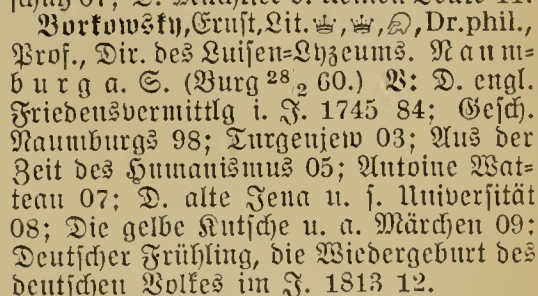 Borkowsky, Ernst, Lit. Dr. phil.,
Prof., Dir. des Luisen=Lyzeums. Naum=
burg a. S. (Burg 28/2 60.) V: D. engl.
Friedensvermittlg i. J. 1745 84; Gesch.
Naumburgs 98; Turgenjew 03; Aus der
Zeit des Humanismus 05; Antoine Wat=
teau 07; D. alte Jena u. s. Universität
08; Die gelbe Kutsche u. a. Märchen 09;
Deutscher Frühling, die Wiedergeburt des
deutschen Volkes im J. 1813 12.